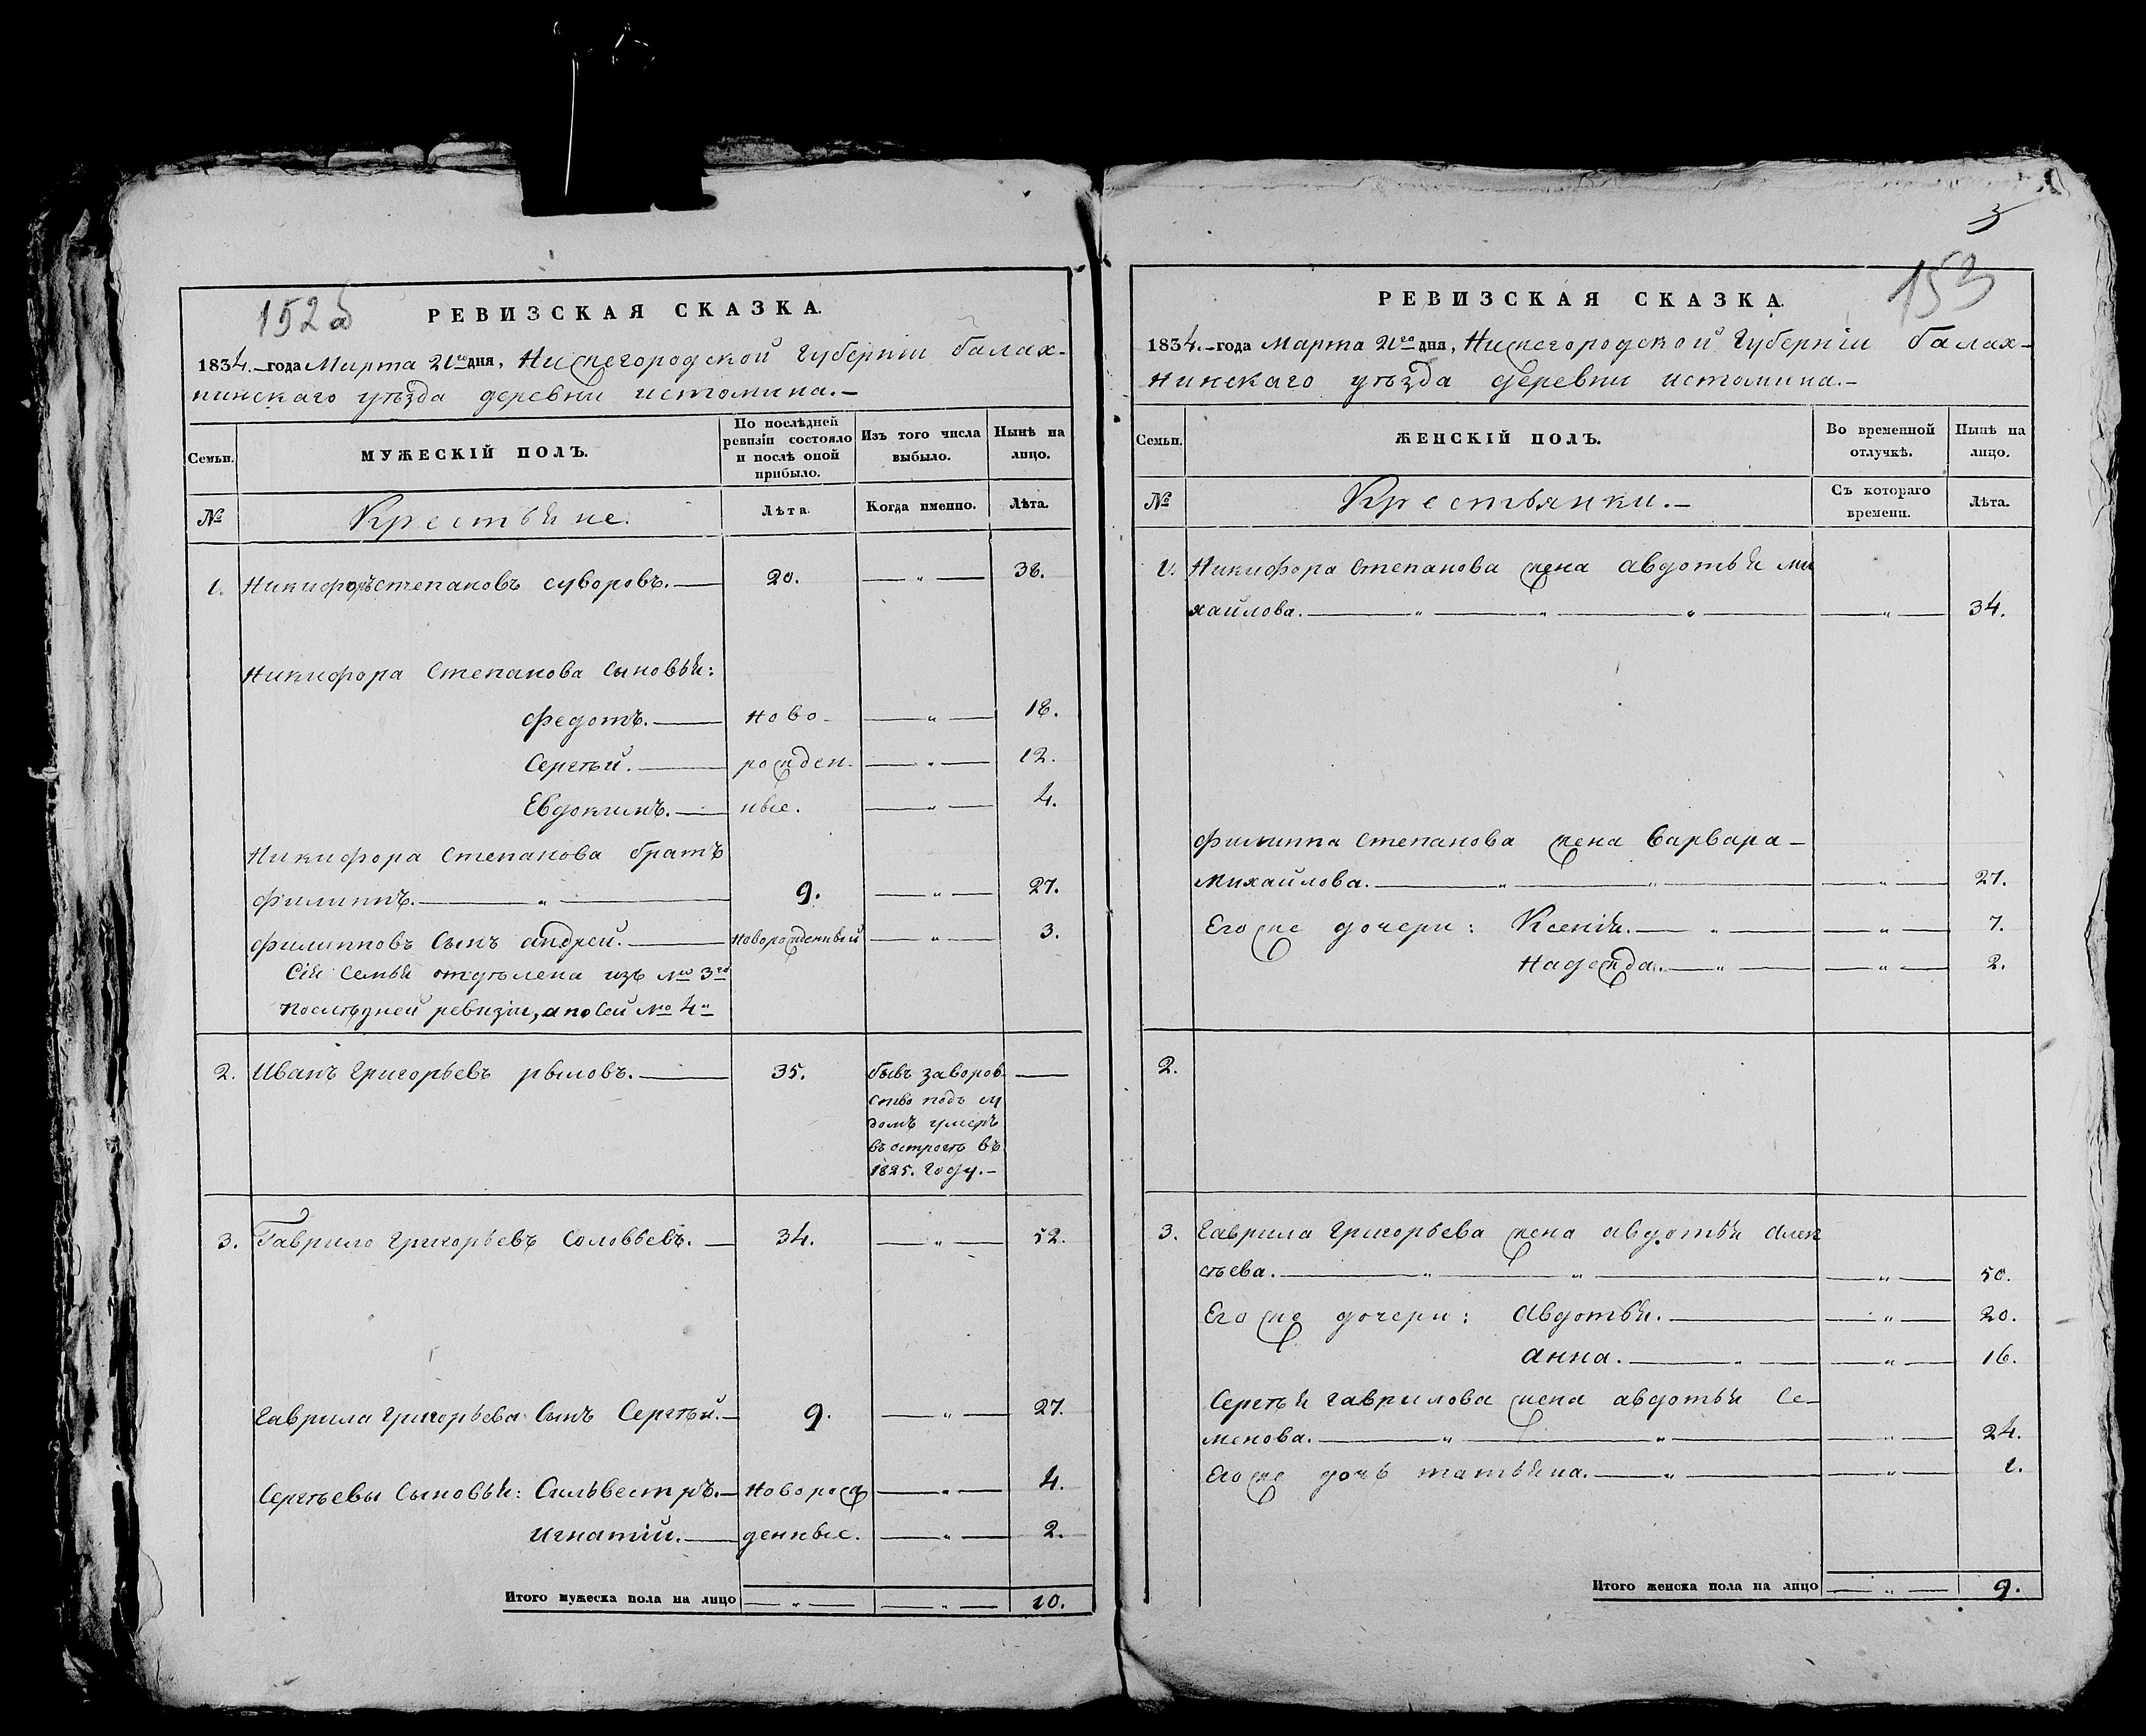 152 об
РЕВИЗСКАЯ СКАЗКА.
1834.–года Марта 21го дня, Нижегородской Губерніи балах-
нинскаго уѣзда деревни истомина.–
Семьи.
МУЖЕСКІЙ ПОЛЪ.
По послѣдней ревизіи состояло и послѣ оной прибыло.
Изъ того числа выбыло.
Нынѣ на лицо.
№
Крестьяне.
Лѣта.
Когда именно.
Лѣта.
1. Никифоръ степановъ суворовъ.— 20. — „ — 38.
Никифора Степанова Сыновья:
Федотъ.— ново- — „ — 18.
Сергѣй.— рожден- — „ — 12.
Евдокимъ.— ные. — „ — 4.
Никифора Степанова братъ
Филиппъ.— „ — 9. — „ — 27.
Филипповъ Сынъ андрей.— новорожденный — „ — 3.
Сія Семья отдѣлена изъ № 3го
послѣдней ревизіи, а по Сей № 4й
2. Иванъ Григорьевъ рыловъ.— 35. бывъ заворов- —
ство подъ су
домъ умеръ
въ острогѣ въ
1825. Году.–
3. Гаврило Григорьевъ Соловьевъ.— 34. — „ — 52.
Гаврила Григорьева Сынъ Сергѣй.— 9. — „ — 27.
Сергѣевы Сыновья: Сильвестръ.— Новорож — „ — 4.
Игнатій.— денные. — „ — 2.
Итого мужеска пола на лицо — „ — — „ — 10.
3
153
РЕВИЗСКАЯ СКАЗКА.
1834.–года Марта 21го дня, Нижегородской Губерніи балах-
нинскаго уѣзда деревни истомина.–
Семьи.
ЖЕНСКІЙ ПОЛЪ.
Во временной отлучкѣ.
Нынѣ на лицо.
№
Крестьянки.–
Съ котораго времени.
Лѣта.
1. Никифора Степанова жена авдотья ми
хайлова.— „ — „ — „ — — „ — 34.
Филиппа Степанова жена Варвара–
Михайлова.— „ — „ — — „ — 27.
Его же дочери: Ксенія.— „ — — „ — 7.
Надежда.— „ — — „ — 2.
2.
3. Гаврила Григорьева жена авдотья алек
сѣева.— „ — „ — — „ — 50.
Его же дочери: Авдотья.— — „ — 20.
анна.— „ — — „ — 16.
Сергѣя гаврилова жена авдотья Се–
менова.— „ — „ — — „ — 24.
Его же дочь татьяна.— „ — — „ — 1.
Итого женска пола на лицо — „ — 9.